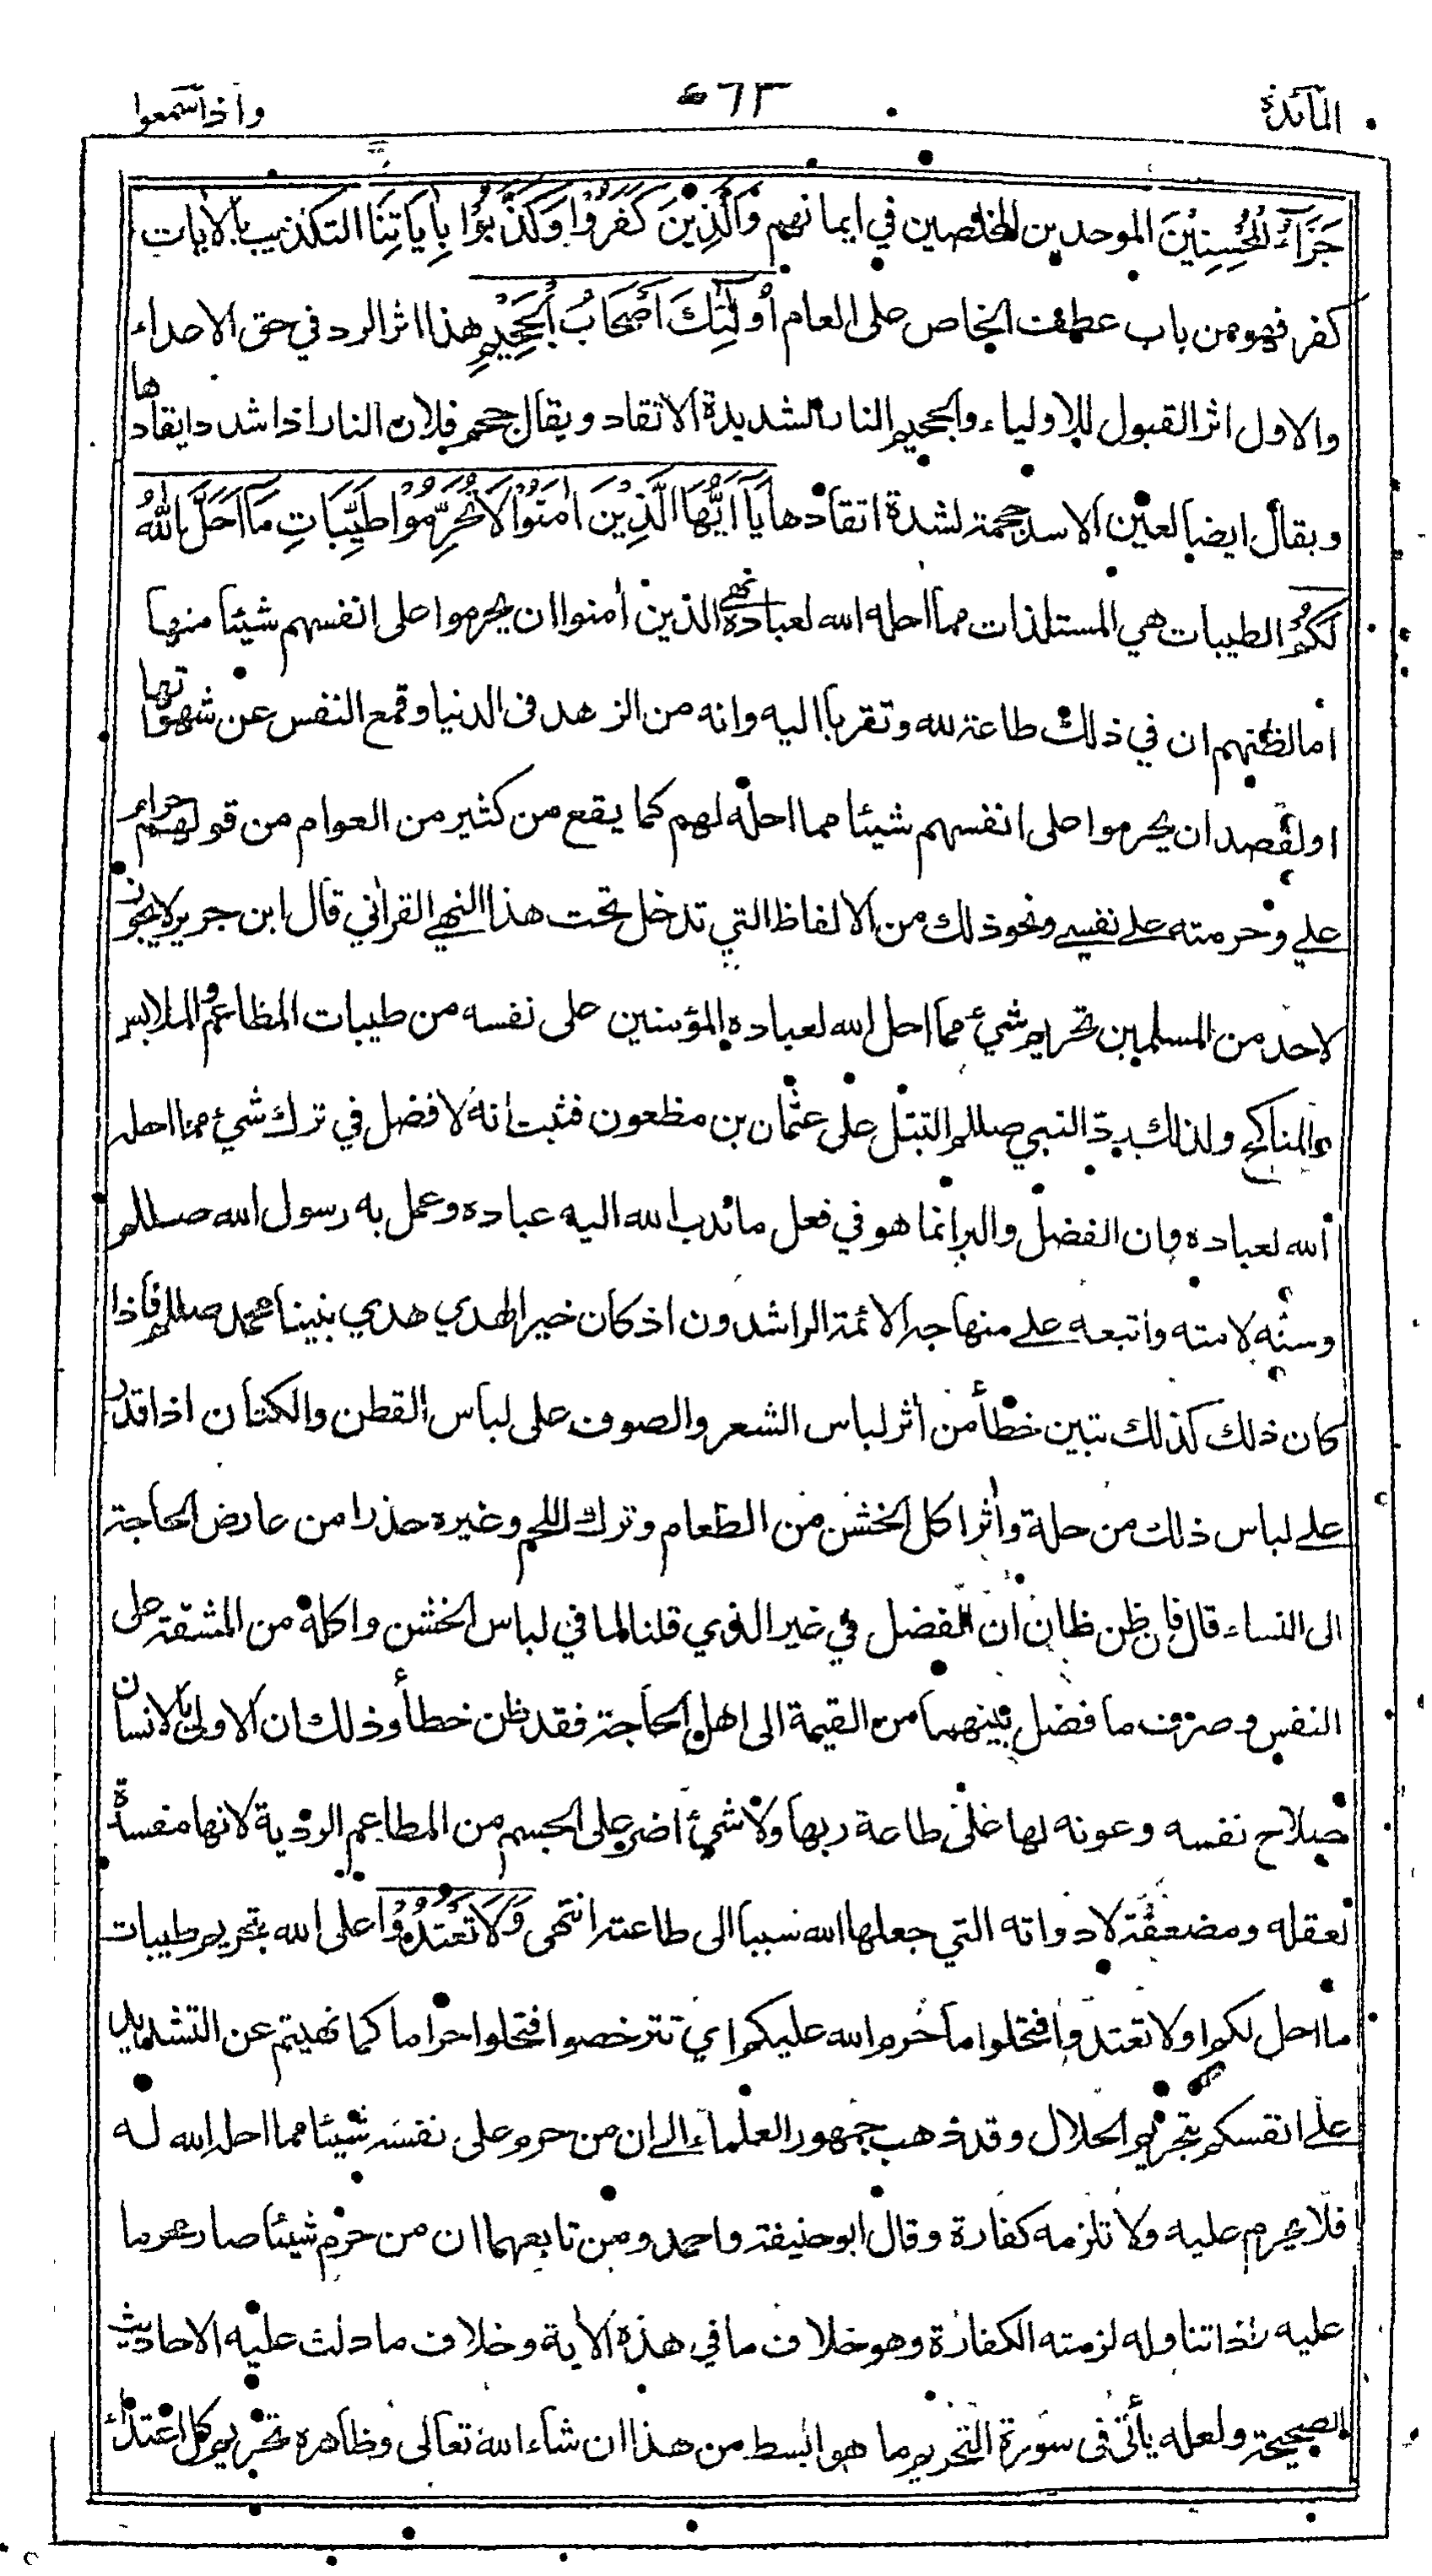 المآئدة
٤٦٣
واذا سمعوا
جَزَآءُ الْمُحْسِنِيْنَ الموحدين المخلصين في ايمانهم وَالَّذِيْنَ كَفَرُوْا وَكَذَّبُوْا بِاٰيَاتِنَا التكذيب بالايات
كفر فهو من باب عطف الخاص على العام اُولٰٓئِكَ اَصْحَابُ الْجَحِيْمِ هذا اثر الرد في حق الاعداء
والاول اثر القبول للاولياء والجحيم النار الشديدة الاتقاد ويقال جحم فلان النار اذا شدد ايقادها
ويقال ايضا لعين الاسد جحمة لشدة اتقادها يَآ اَيُّهَا الَّذِيْنَ اٰمَنُوْا لَا تُحَرِّمُوْا طَيِّبَاتِ مَآ اَحَلَّ اللّٰهُ
لَكُمْ الطيبات هي المستلذات مما احله الله لعباده نهى الذين اٰمنوا ان يحرموا على انفسهم شيئا منها
اما لظنهم ان في ذلك طاعة لله وتقربا اليه وانه من الزهد في الدنيا وقمع النفس عن شهواتها
او لقصد ان يحرموا على انفسهم شيئا مما احله لهم كما يقع من كثير من العوام من قولهم حرام
علي وحرمته على نفسي ونحو ذلك من الالفاظ التي تدخل تحت هذا النهي القراٰني قال ابن جرير لا يجوز
لاحد من المسلمين تحريم شيء مما احل الله لعباده المؤمنين على نفسه من طيبات المطاعم والملابس
والمناكح ولذلك رد النبي صللم التبتل على عثمان بن مظعون فثبت انه لا فضل في ترك شيء مما احله
الله لعباده وان الفضل والبر انما هو في فعل ما ندب الله اليه عباده وعمل به رسول الله صللم
وسنه لامته واتبعه على منهاجه الائمة الراشدون اذ كان خير الهدي هدي نبينا محمد صللم فاذا
كان ذلك كذلك تبين خطأ من اٰثر لباس الشعر والصوف على لباس القطن والكتان اذا قدر
على لباس ذلك من حلة واٰثر اكل الخشن من الطعام وترك اللحم وغيره حذرا من عارض الحاجة
الى النساء قال فان ظن ظان ان الفضل في غير الذي قلنا لما في لباس الخشن واكله من المشقة على
النفس وصرف ما فضل بينهما من القيمة الى اهل الحاجة فقد ظن خطأ وذلك ان الاولى بالانسان
صلاح نفسه وعونه لها على طاعة ربها ولا شيء اضر على الجسم من المطاعم الردية لانها مفسدة
لعقله ومضعفة لادواته التي جعلها الله سببا الى طاعته انتهى وَلَا تَعْتَدُوْا على الله بتحريم طيبات
ما احل لكم او لا تعتدوا فتحلوا ما حرم الله عليكم اي تترخصوا فتحلوا حراما كما نهيتم عن التشديد
على انفسكم بتحريم الحلال وقد ذهب جمهور العلماء الى ان من حرم على نفسه شيئا مما احله الله له
فلا يحرم عليه ولا تلزمه كفارة وقال ابو حنيفة واحمد ومن تابعهما ان من حرم شيئا صار محرما
عليه واذا تناوله لزمته الكفارة وهو خلاف ما في هذه الاٰية وخلاف ما دلت عليه الاحاديث
الصحيحة ولعله يأتي في سورة التحريم ما هو ابسط من هذا ان شاء الله تعالى وظاهره تحريم كل اعتداء